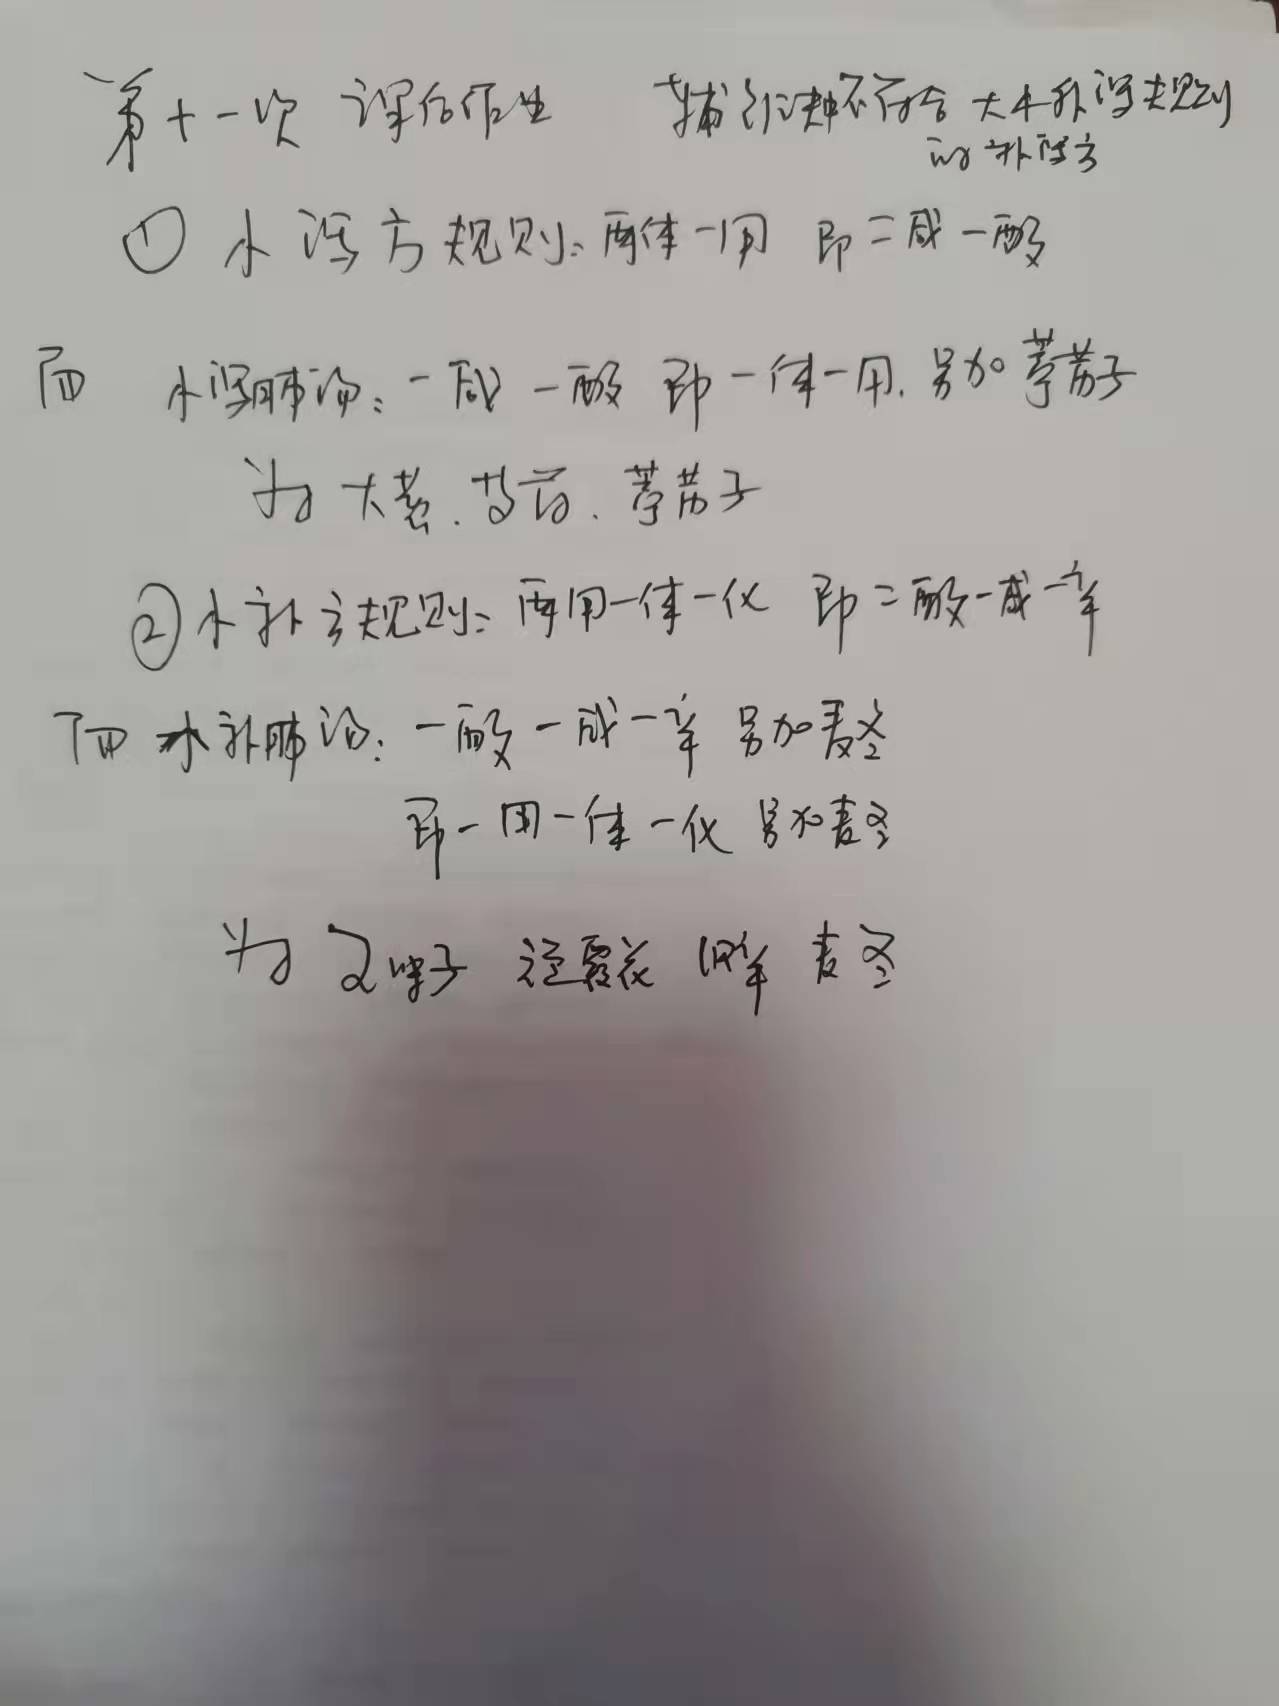 第十一次 课后作业 辅行诀中不符合大小补泻规则
的补泻方
① 小泻方规则：两体一用 即二咸一酸
而 小泻肺汤：一咸一酸 即一体一用.另加葶苈子
为大黄.芍药.葶苈子
② 小补方规则：两用一体一化 即二酸一咸一辛
而 小补肺汤：一酸一咸一辛 另加麦冬
即一用一体一化 另加麦冬
为 五味子 旋覆花 细辛 麦冬